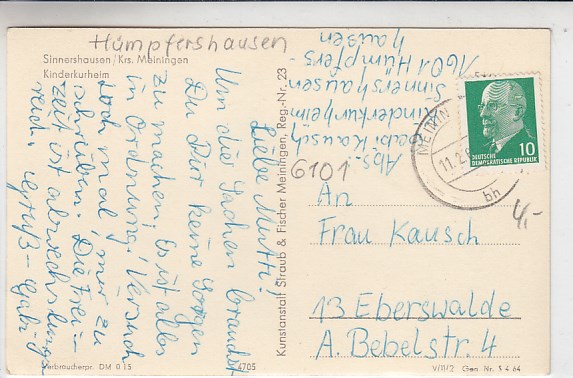 Hümpfershausen
Sinnershausen/Krs. Meiningen
Kinderkurheim
Liebe Mutti!
Um die Sachen brauchst
Du Dir keine Sorgen
zu machen. Es ist alles
in Ordnung. Versuch
doch mal, mir zu
schreiben. Die Frei-
zeit ist abwechslungs-
reich. Gruß – Gabi
Verbraucherpr. DM 0.15
4705
Kunstanstalt Straub & Fischer Meiningen, Reg.-Nr. 23
Abs.
Gabi Kausch
Kinderkurheim
Sinnershausen
1601 Hümpfers-
hausen
6101
MEININ
11.2.
bh
DEUTSCHE
DEMOKRATISCHE REPUBLIK
10
4,-
An
Frau Kausch
13 Eberswalde
A. Bebelstr. 4
V/11/2 Gen Nr. S 4 64